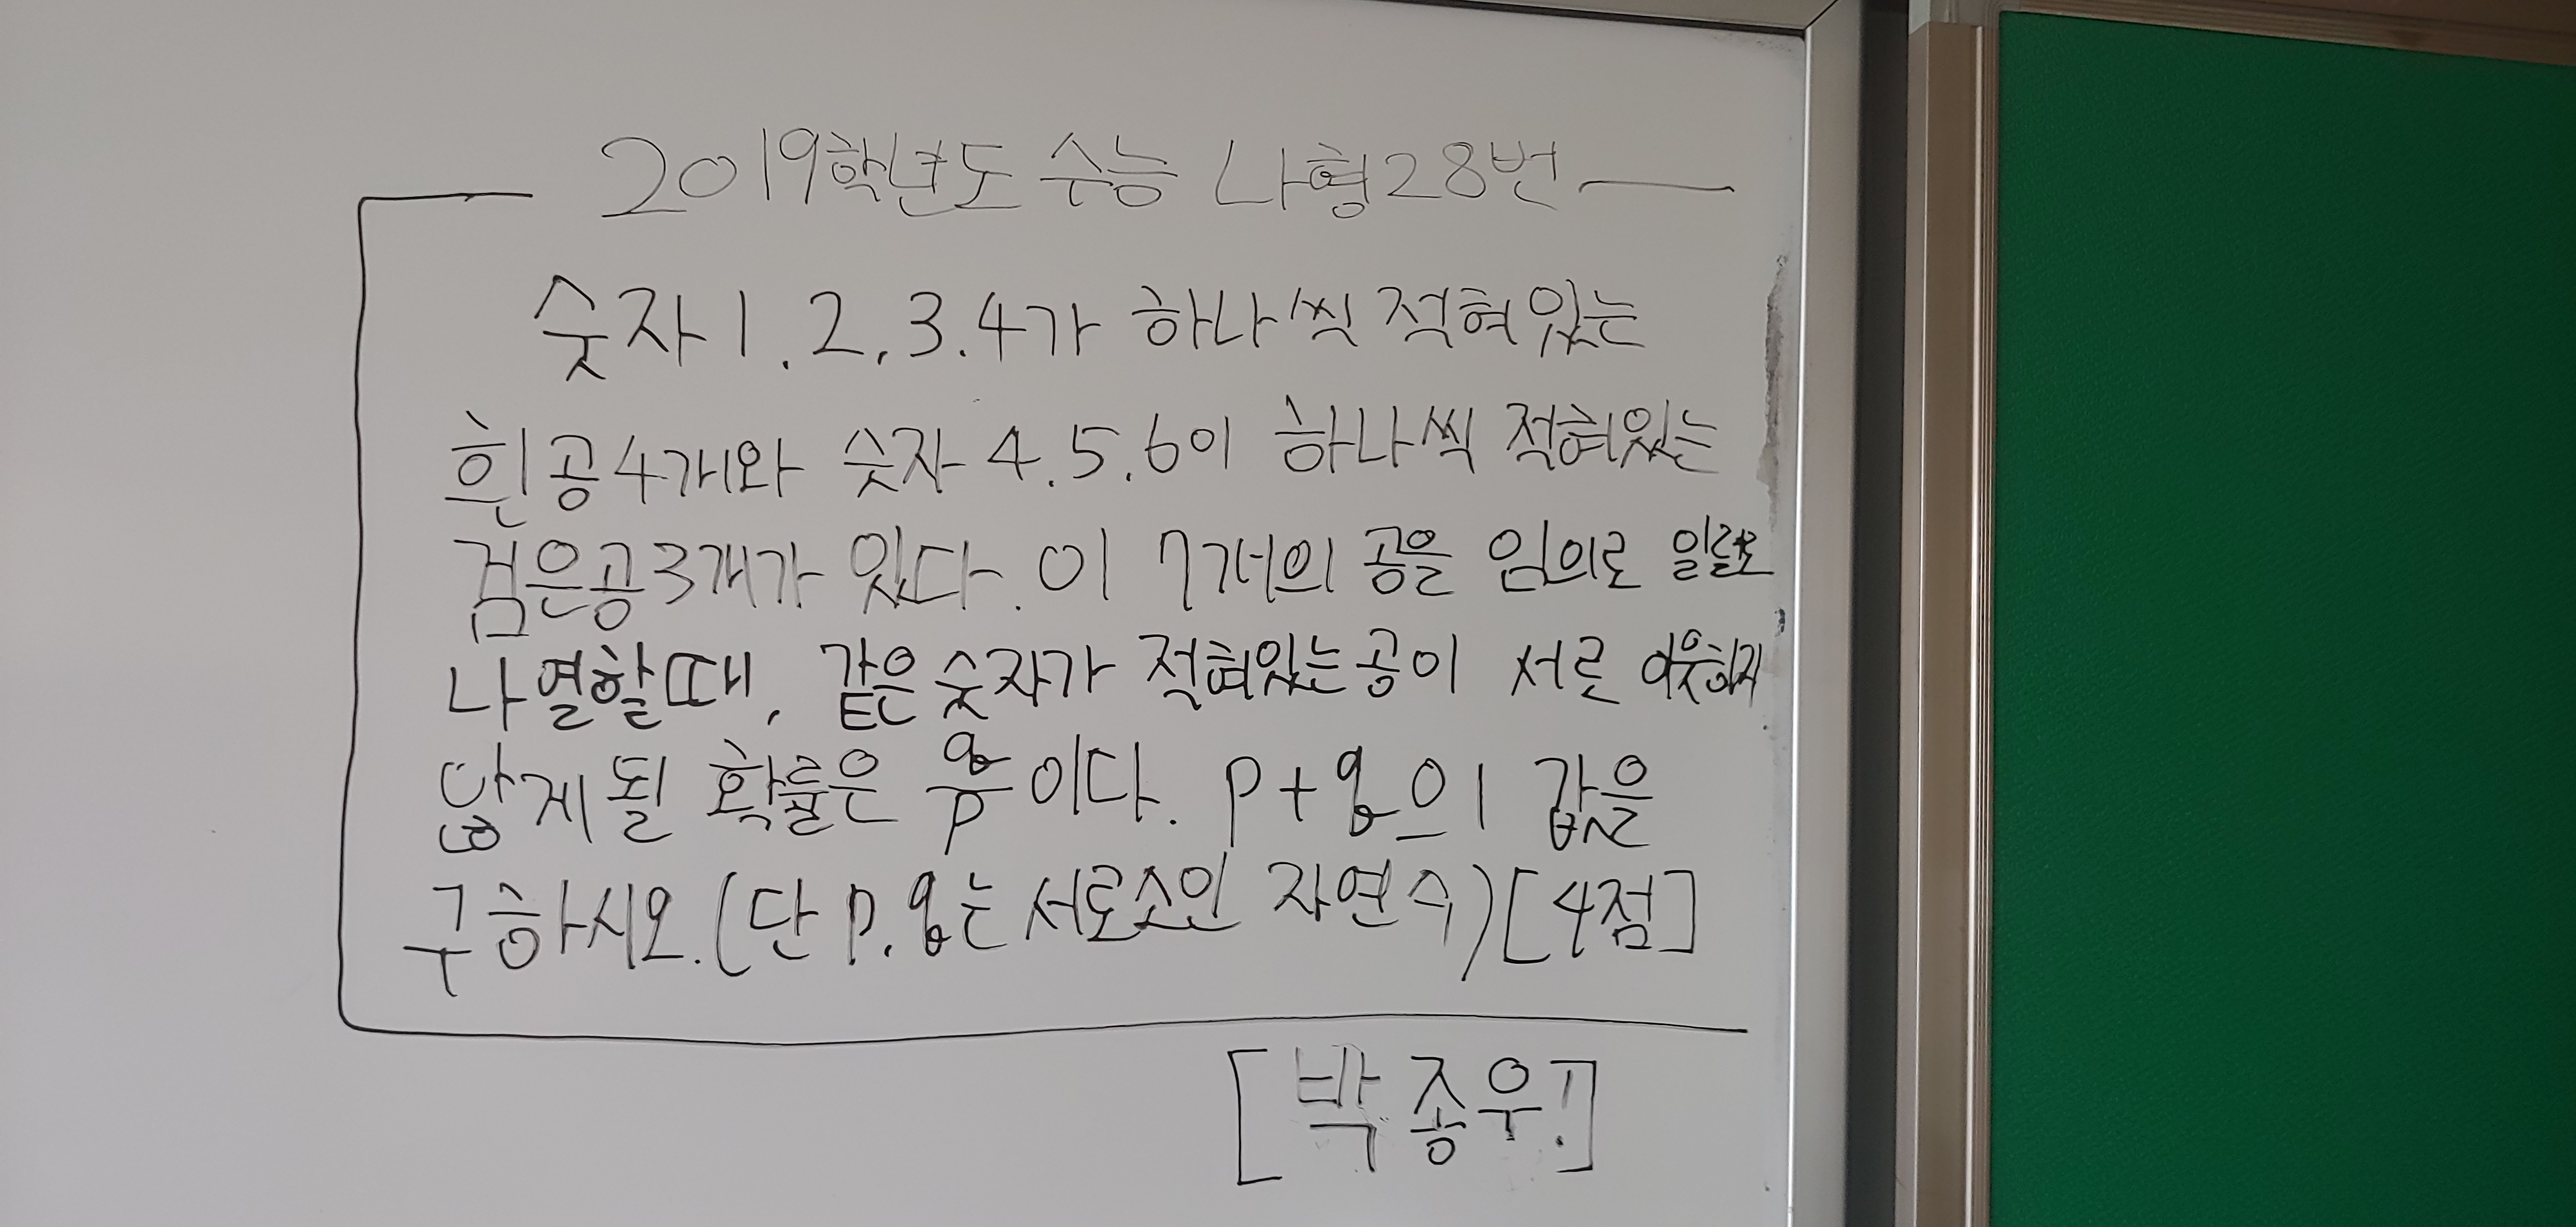 2019학년도 수능 나형28번
숫자 1.2.3.4가 하나씩 적혀있는
흰공4개와 숫자 4.5.6이 하나씩 적혀있는
검은공3개가 있다. 이 7개의 공을 임의로 일렬로
나열할때, 같은숫자가 적혀있는공이 서로 이웃하지
않게될 확률은 q/p이다. p+q의 값을
구하시오.(단 p.q는 서로소인 자연수)[4점]
[박종우!]